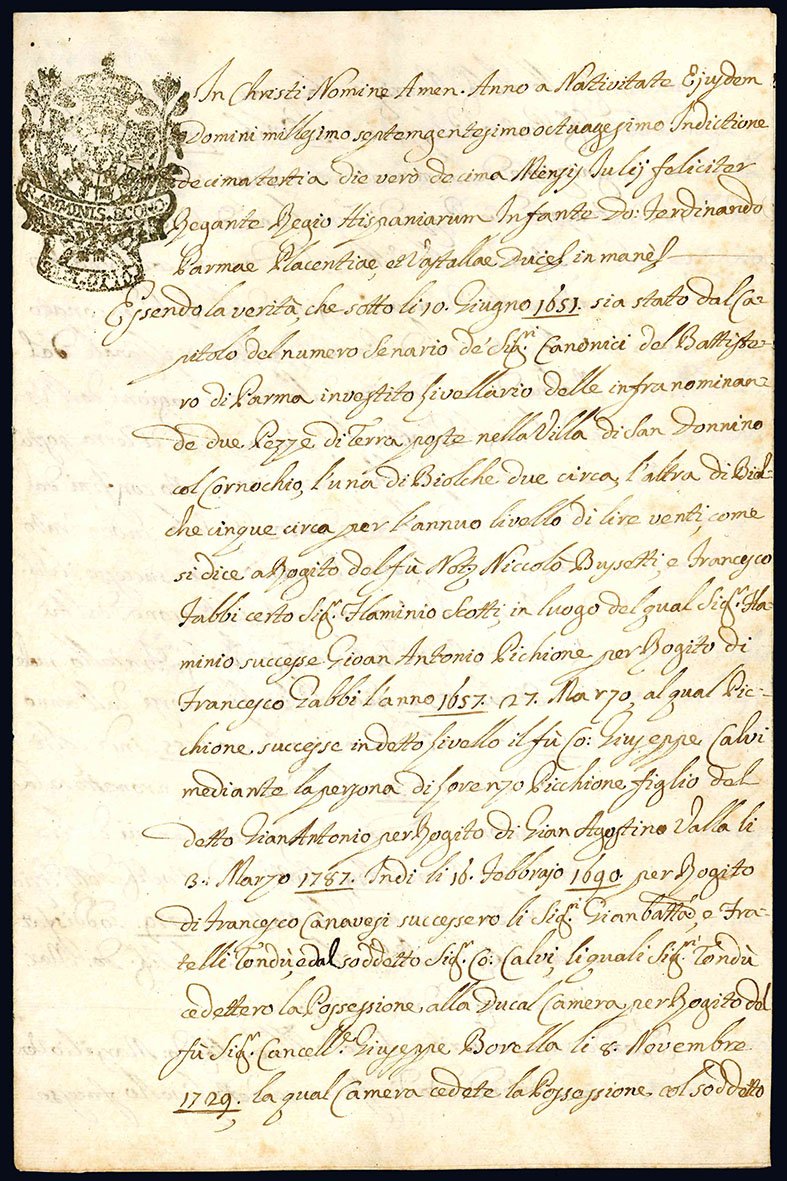 In Christi Nomine Amen. Anno a Nativitate Ejusdem
Domini millesimo septemgentesimo octuagesimo Indictione
decimatertia die verò decima Mensis Julij feliciter
Regante Regio Hispaniarum Infante Do: Ferdinando
Parmae Placentiae, et Vastallae Duces in manès
Essendo la verità, che sotto li 10. Giugno 1651. sia stato dal Ca=
pitolo del numero Senario de' Sig.ri Canonici del Battiste=
ro di Parma investito livellario delle infranominan=
de due Pezze di Terra poste nella Villa di San Donnino
col Cornochio, l'una di Biolche due circa, l'altra di Biol=
che cinque circa per l'annuo livello di lire venti, come
si dice a Rogito del fù Not.o Niccolò Bussetti, e Francesco
Gabbi certo Sig.r Flaminio Scotti, in luogo del qual Sig.r Fla=
minio successe Gioan Antonio Pichione per Rogito di
Francesco Gabbi l'anno 1657. 27. Marzo, al qual Pic=
chione successe in detto livello il fù Co: Giuseppe Calvi
mediante la persona di Lorenzo Picchione figlio del
detto Gian Antonio per Rogito di Gian Agostino Valla li
3. Marzo 1787. Indi li 16. Febbrajo 1690. per Rogito
di Francesco Canavesi successero li Sig.ri Gianbatt̃a, e Fra=
telli Tondù, e dal soddetto Sig.r Co: Calvi, li quali Sig.ri Tondù
cedettero la Possessione alla Ducal Camera per Rogito del
fù Sig.r Cancell.re Giuseppe Borella li 8. Novembre
1729. la qual Camera cedete la Possessione col soddetto